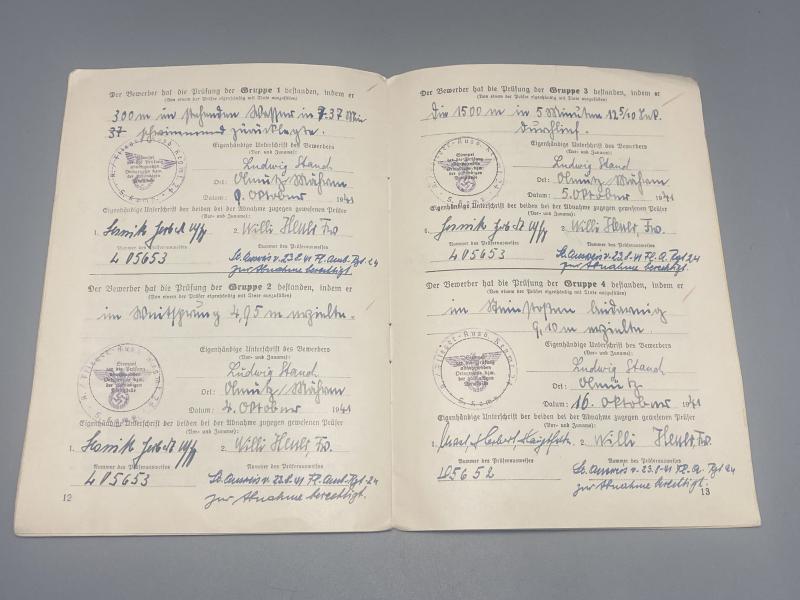 Der Bewerber hat die Prüfung der Gruppe 1 bestanden, indem er
(Von einem der Prüfer eigenhändig mit Tinte auszufüllen)
300 m im stehenden Wasser in 7.37 Min
37 schwimmend zurücklegte.
Eigenhändige Unterschrift des Bewerbers
(Vor- und Zuname):
Ludwig Stand
Ort: Olmütz Mähren
Datum: 9. Oktober 1941
Eigenhändige Unterschrift der beiden bei der Abnahme zugegen gewesenen Prüfer
(Vor- und Zuname):
1. 2. Willi
Nummer des Prüferausweises Nummer des Prüferausweises
405653 v. 23.8.41 Fl. Ausb. Rgt. 24
zur Abnahme berechtigt.
Der Bewerber hat die Prüfung der Gruppe 2 bestanden, indem er
(Von einem der Prüfer eigenhändig mit Tinte auszufüllen)
im Weitsprung 4,95 m erzielte.
Eigenhändige Unterschrift des Bewerbers
(Vor- und Zuname):
Ludwig Stand
Ort: Olmütz Mähren
Datum: 4. Oktober 1941
Eigenhändige Unterschrift der beiden bei der Abnahme zugegen gewesenen Prüfer
(Vor- und Zuname):
1. 2. Willi
Nummer des Prüferausweises Nummer des Prüferausweises
405653 v. 23.8.41 Fl. Ausb. Rgt. 24
zur Abnahme berechtigt.
12
Der Bewerber hat die Prüfung der Gruppe 3 bestanden, indem er
(Von einem der Prüfer eigenhändig mit Tinte auszufüllen)
Die 1500 m in 5 Minuten 12 5/10 Sek.
durchlief.
Eigenhändige Unterschrift des Bewerbers
(Vor- und Zuname):
Ludwig Stand
Ort: Olmütz Mähren
Datum: 5. Oktober 1941
Eigenhändige Unterschrift der beiden bei der Abnahme zugegen gewesenen Prüfer
(Vor- und Zuname):
1. 2. Willi
Nummer des Prüferausweises Nummer des Prüferausweises
405653 v. 23.8.41 Fl. A. Rgt 24
zur Abnahme berechtigt.
Der Bewerber hat die Prüfung der Gruppe 4 bestanden, indem er
(Von einem der Prüfer eigenhändig mit Tinte auszufüllen)
im Steinstoßen beidarmig
9,10 m erzielte.
Eigenhändige Unterschrift des Bewerbers
(Vor- und Zuname):
Ludwig Stand
Ort: Olmütz
Datum: 16. Oktober 1941
Eigenhändige Unterschrift der beiden bei der Abnahme zugegen gewesenen Prüfer
(Vor- und Zuname):
1. Herbert 2. Willi
Nummer des Prüferausweises Nummer des Prüferausweises
405652 v. 23.8.41 Fl. A. Rgt 24
zur Abnahme berechtigt.
13